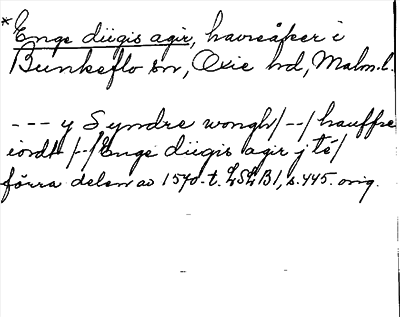 * Enge diigis agir, havreåker i
Bunkeflo sn, Oxie hd, Malm.l.
--- y Syndre wongh/--/hauffre
iordt/--/Enge diigis agir j té/
förra delen av 1570-t. LSLB1, s.445. orig.